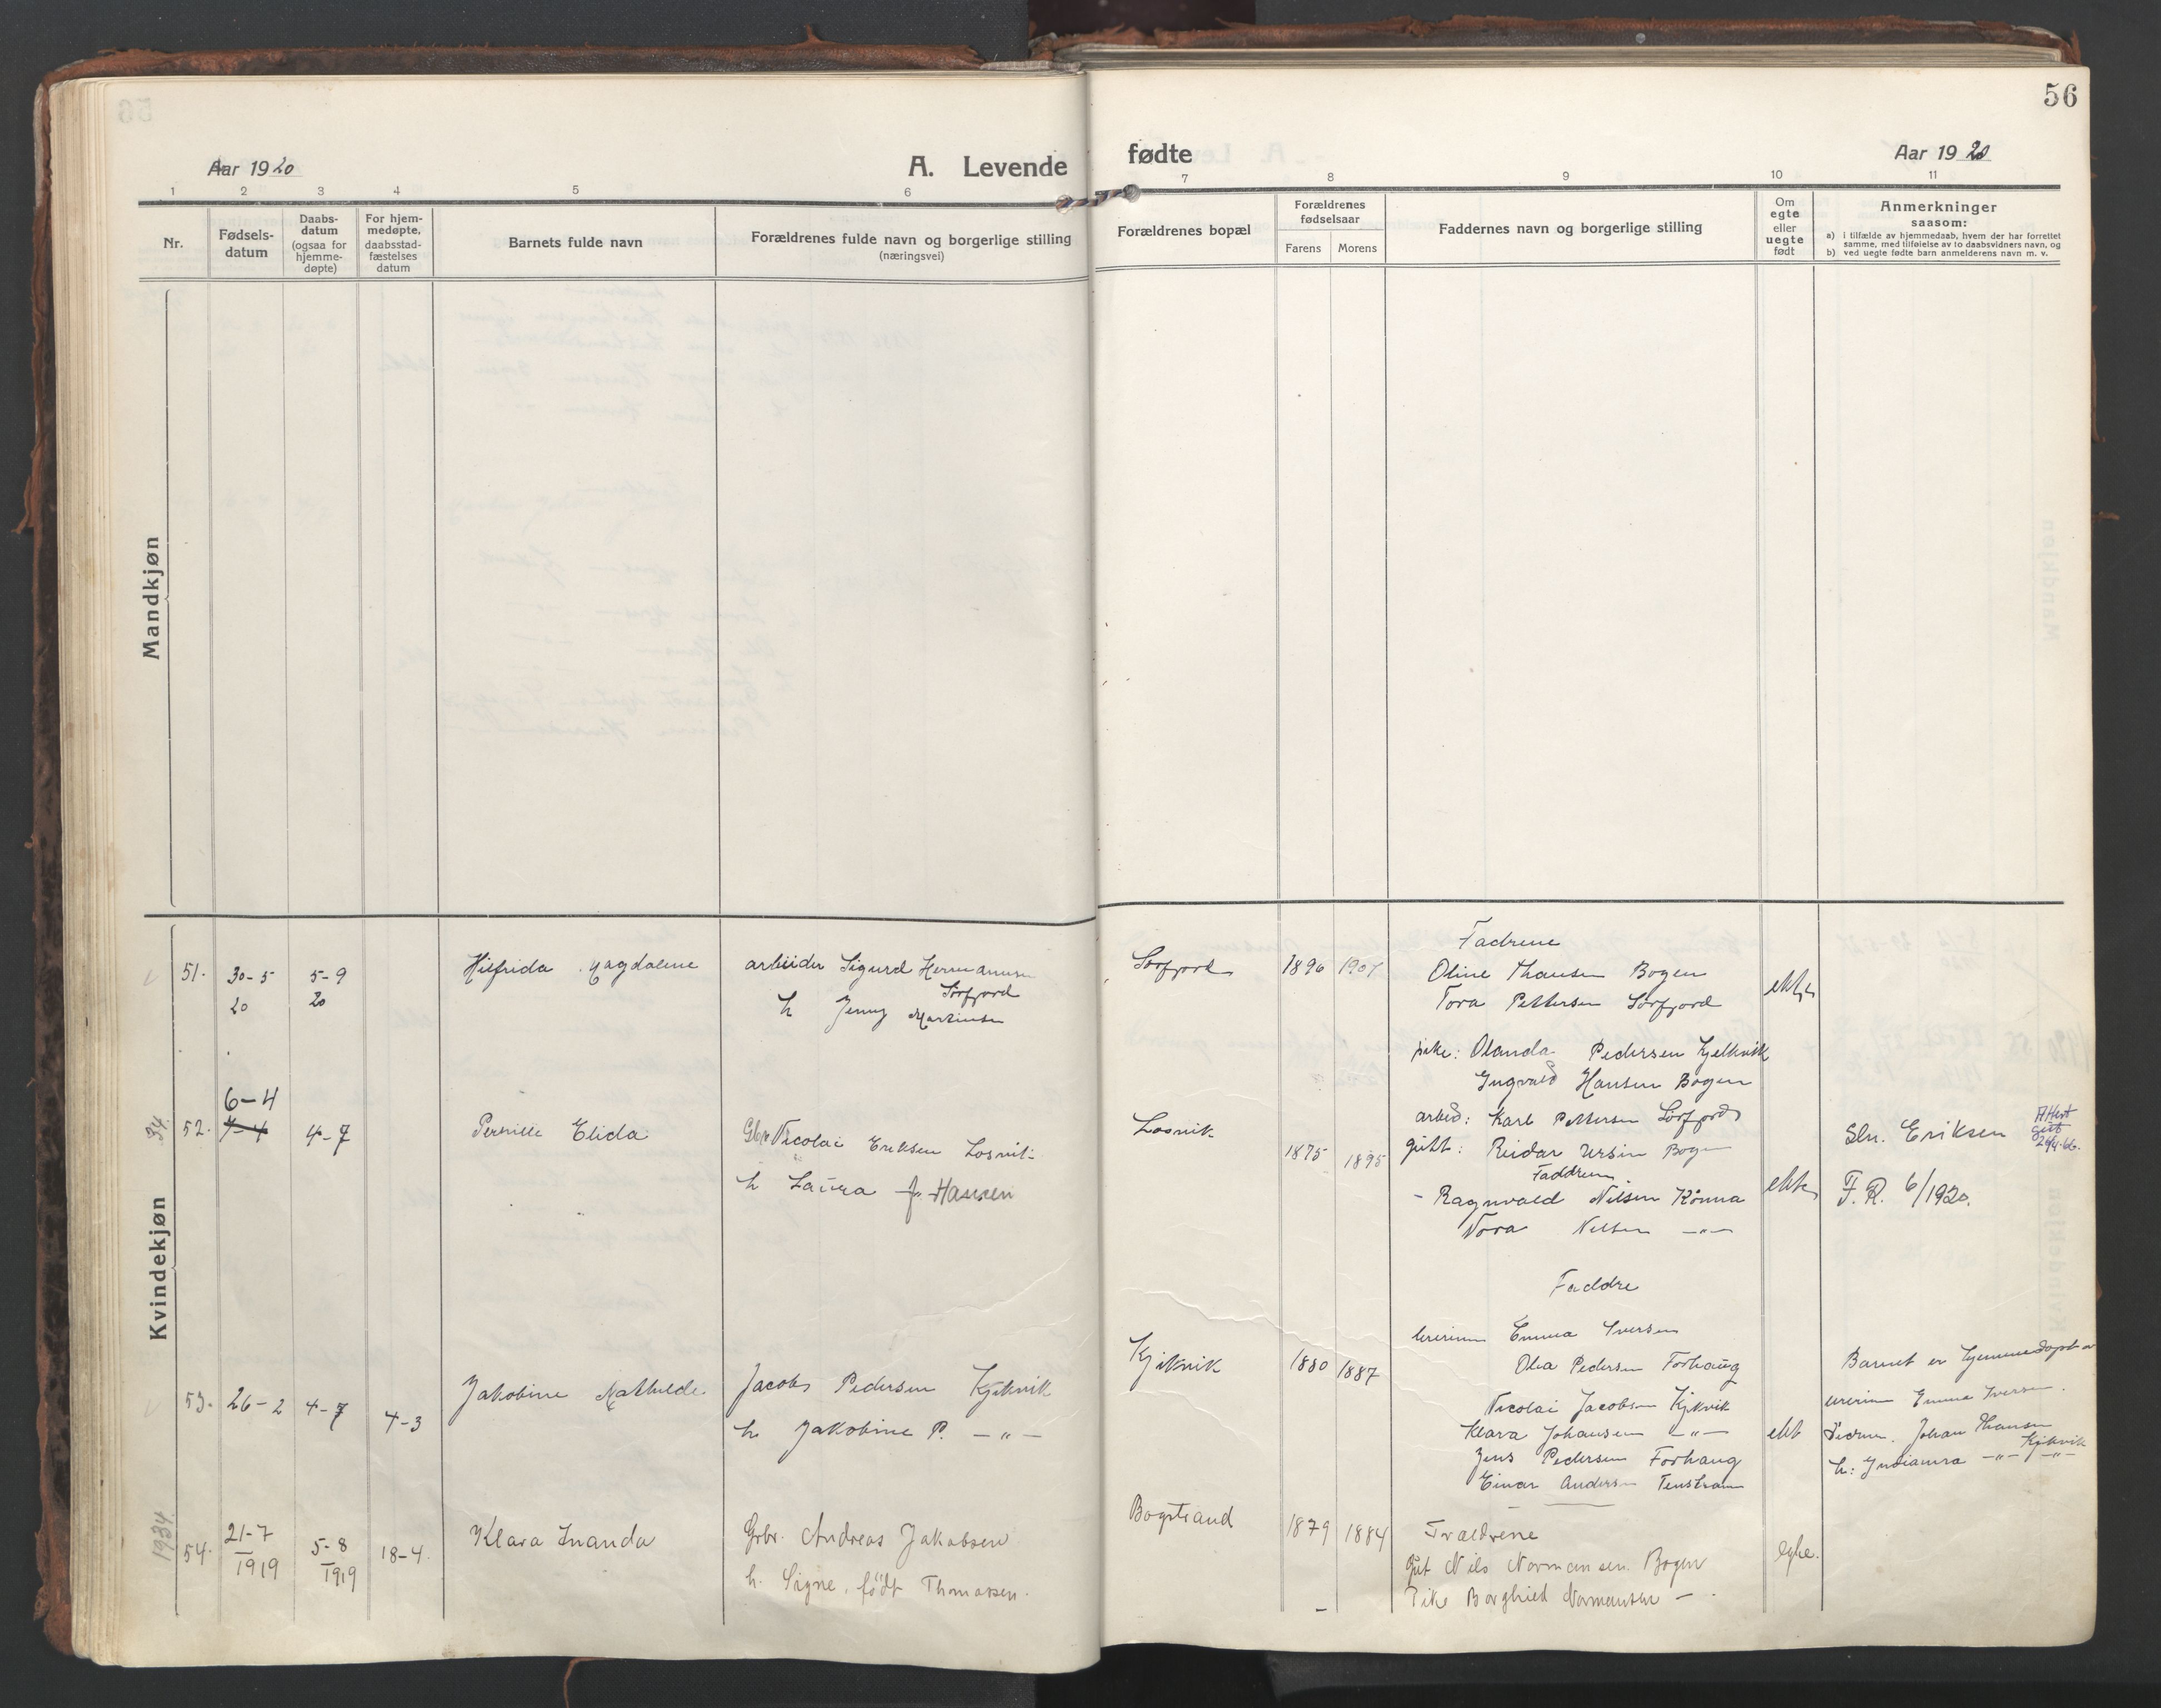 56
Aar 1920
A. Levende fødte
Aar 1920
1 2 3 4 5 6 7 8 9 10 11
Nr.
Fødsels-
datum
Daabs-
datum
(ogsaa for
hjemme-
døpte)
For hjem-
medøpte,
daabsstad-
fæstelses
datum
Barnets fulde navn
Forældrenes fulde navn og borgerlige stilling
(næringsvei)
Forældrenes bopæl
Forældrenes
fødselsaar
Farens Morens
Faddernes navn og borgerlige stilling
Om
egte
eller
uegte
født
Anmerkninger
saasom:
a) i tilfælde av hjemmedaab, hvem der har forrettet
samme, med tilføielse av to daabsvidners navn, og
b) ved uegte fødte barn anmelderens navn m. v.
Mandkjøn
Kvindekjøn
51. 30-5
20
5-9
20
Hilfrida Magdalene
arbeider Sigurd Hermansen
Sørfjord
h Jenny Martinsen
Sørfjord
1896 1901
Fadrene
Oline Hansen Bogen
Tora Pettersen Sørfjord
pike: Olanda Pedersen Kjelkvik
Ingvald Hansen Bogen
arbeid: Karl Pettersen Sørfjord
gutt: Reidar Ursin Bogen
34.
52. 6-4
7-4
4-7
Pernille Elida
Gbr Nicolai Eriksen Losvik
h Laura f. Hansen
Losvik
1875 1895
Faddrene
Ragnvald Nilsen Rönna
Nora Nilsen —"—
ekte
Sln. Eriksen
F. R. 6/1920.
Attest
gitt
53. 26-2 4-7 4-3
Jakobine Mathilde
Jacob Pedersen Kjikvik
h. Jakobine P. —"—
Kjikvik
1880 1887
Faddre
Emma Iversen
Ola Pedersen Forhaug
Nicolai Jacobsen Kjikvik
Klara Johansen —"—
Jens Pedersen Forhaug
Einar Andersen
ekt
Barnet er hjemmedøpt av
Emma Iversen.
Johan Hansen
Kjikvik
1934.
54. 21-7
1919
5-8
1919
18-4
Klara Inanda
Grbr. Andreas Jakobsen
h. Signe, född Thomassen.
Bogstrand
1879 1884
Forældrene
Gut Nils Normansen Bogen
Pike Borghild Normansen —
egte.